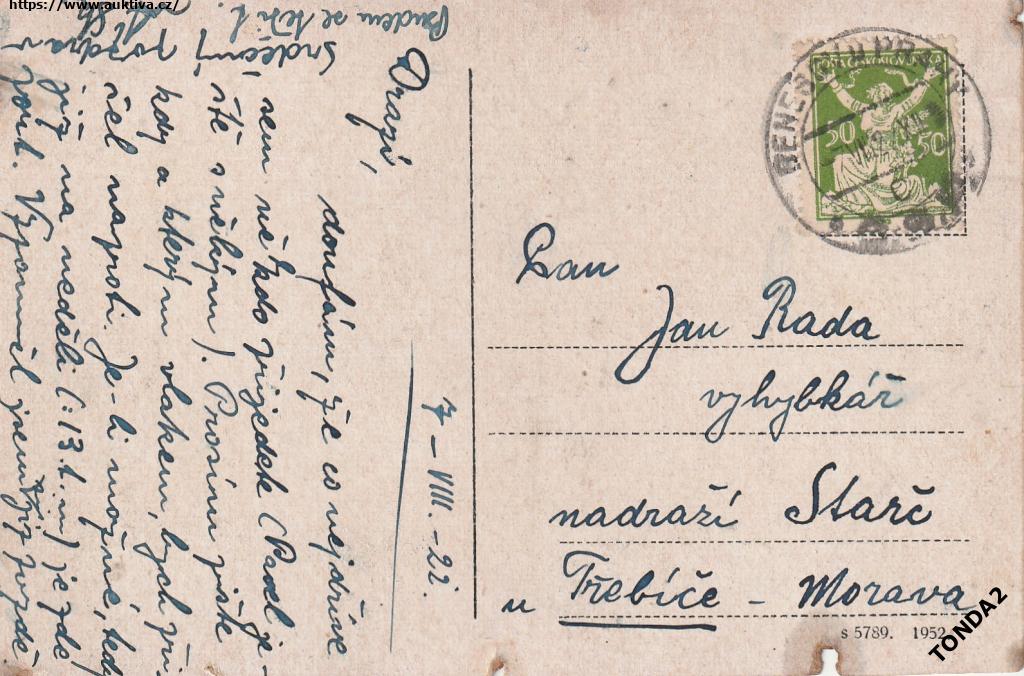 https://www.auktiva.cz/
7-VIII.-22.
Drazí,
doufám, že co nejdříve
sem někdo přijede (Pavel je-
ště s někým). Prosím pište
kdy a kterým vlakem, bych při-
šel naproti. Je-li možné, tedy
již na neděli (:13.t.m) je zde
pout. Vzpomněl jsem již pozdě
Srdečný pozdrav
Budem se těšit.
POŠTA ČESKOSLOVENSKÁ
50 50
Pan
Jan Rada
vyhybkář
nadraží Starč
u Třebíče - Morava
s 5789. 1952
TONDA2